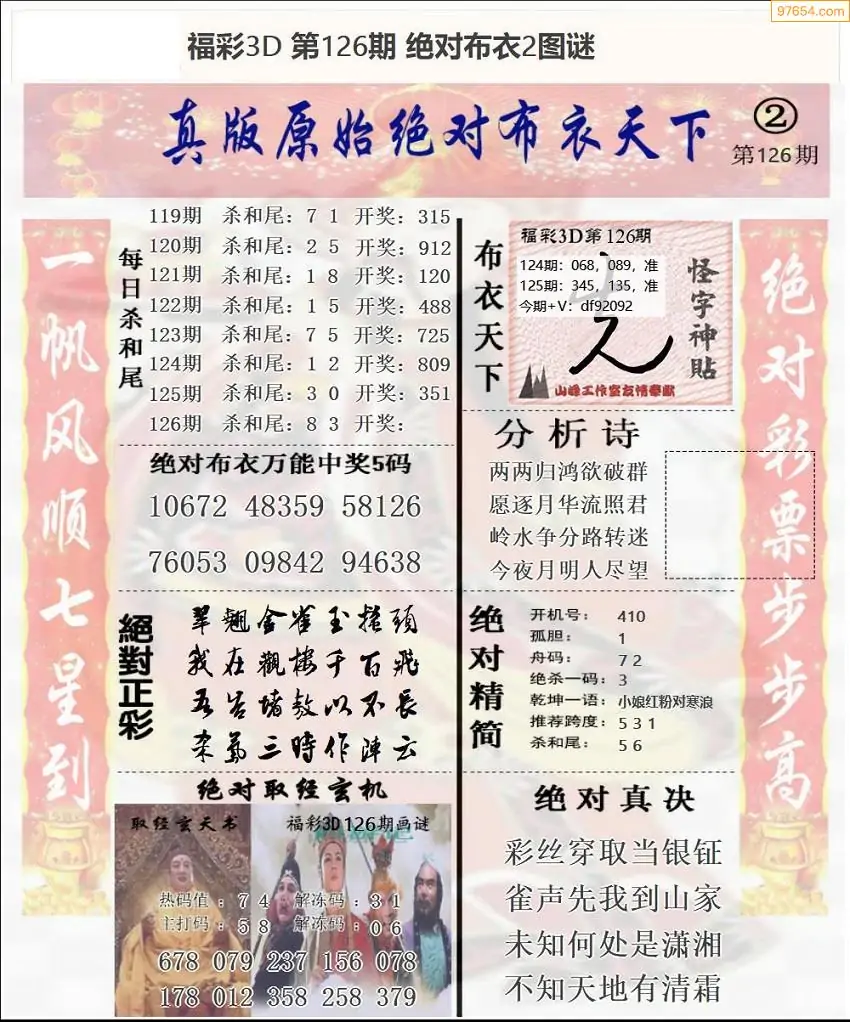 97654.com
福彩3D 第126期 绝对布衣2图谜
真版原始绝对布衣天下
②
第126期
一帆风顺七星到
每日杀和尾
119期 杀和尾：7 1 开奖：315
120期 杀和尾：2 5 开奖：912
121期 杀和尾：1 8 开奖：120
122期 杀和尾：1 5 开奖：488
123期 杀和尾：7 5 开奖：725
124期 杀和尾：1 2 开奖：809
125期 杀和尾：3 0 开奖：351
126期 杀和尾：8 3 开奖：
绝对布衣万能中奖5码
10672 48359 58126
76053 09842 94638
絕對正彩
翠翘金雀玉搔頭
我在觀樓千百飛
三時作陣云
绝对取经玄机
取经玄天书
福彩3D126期画谜
热码值：7 4 解冻码：3 1
主打码：5 8 解冻码：0 6
678 079 237 156 078
178 012 358 258 379
布衣天下
福彩3D第126期
124期：068，089，准
125期：345，135，准
今期+V：df92092
怪字神貼
山峰工作室友情奉献
分析诗
两两归鸿欲破群
愿逐月华流照君
岭水争分路转迷
今夜月明人尽望
绝对精简
开机号： 410
孤胆： 1
舟码： 7 2
绝杀一码：3
乾坤一语：小娘红粉对寒浪
推荐跨度：5 3 1
杀和尾： 5 6
绝对真决
彩丝穿取当银钲
雀声先我到山家
未知何处是潇湘
不知天地有清霜
绝对彩票步步高